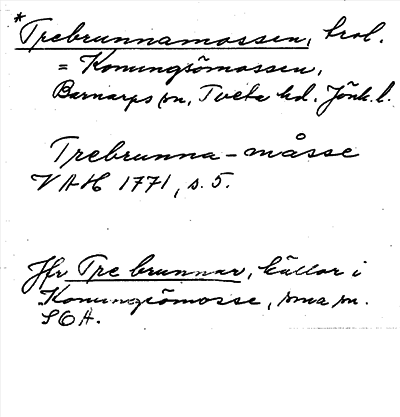 *Trebrunnamossen, trol.
= Konungsömossen,
Barnarps sn, Tveta hd. Jönk. l.
Trebrunna-måsse
VAH 1771, s. 5.
Jfr Tre brunnar, källor i
Konungsömosse, sma sn.
SOA.